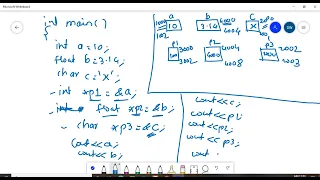 Microsoft Whiteboard
int main()
{
int a=10;
float b=3.14;
char c='x';
int *p1=&a;
float *p2=&b;
char *p3=&c;
cout<<a;
cout<<b;
a
b
c
1000
10
1002
3.14
4000
4004
x
2000
P1
P2
P3
3000
3002
6000
4008
2002
2003
cout<<c;
cout<<p1;
cout<<p2;
cout<<p3;
cout